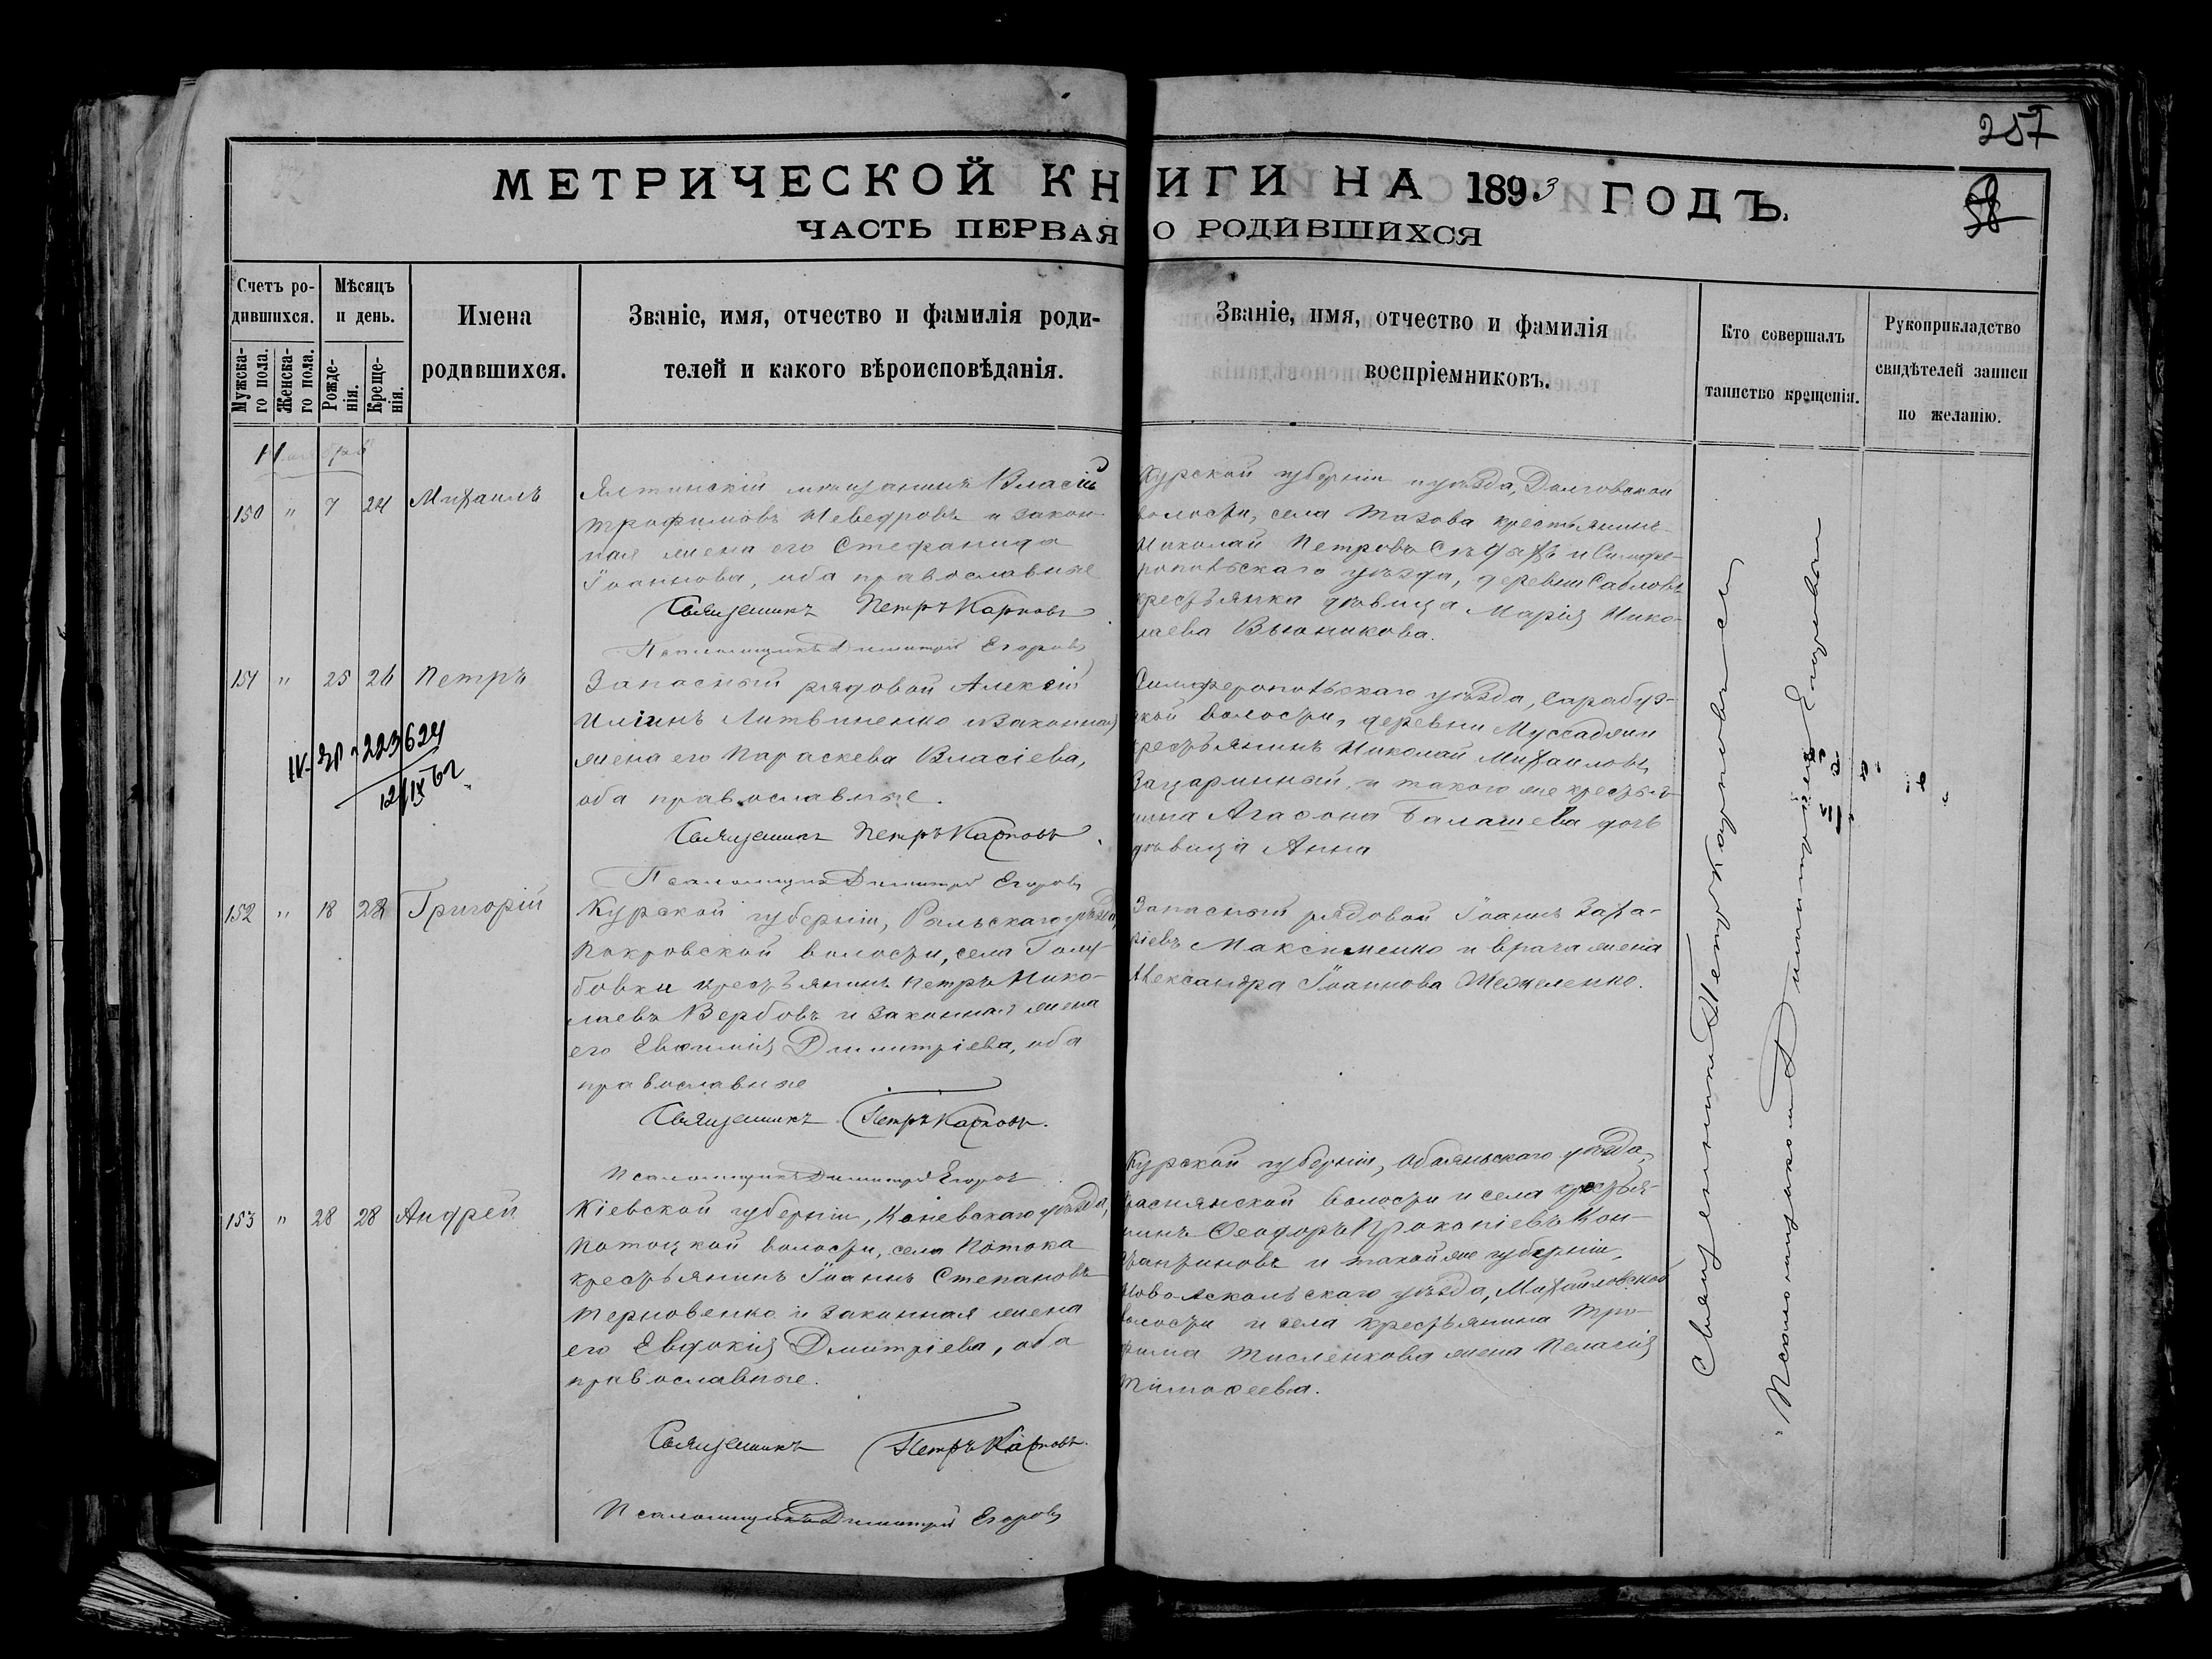 257
58
МЕТРИЧЕСКОЙ КНИГИ НА 1893 ГОДЪ.
ЧАСТЬ ПЕРВАЯ О РОДИВШИХСЯ
Счетъ родившихся.
Мужскаго пола.
Женскаго пола.
Мѣсяцъ и день.
Рожденія.
Крещенія.
Имена
родившихся.
Званіе, имя, отчество и фамилія роди-
телей и какого вѣроисповѣданія.
Званіе, имя, отчество и фамилія
воспріемниковъ.
Кто совершалъ
таинство крещенія.
Рукоприкладство
свидѣтелей записи
по желанію.
150 " 7 24 Михаилъ
Ялтинскій мѣщанинъ Власій
Трофимовъ Неведровъ и закон-
ная жена его Стефанида
Іоаннова, оба православные
Священникъ Петръ Карповъ
Псаломщикъ Димитрій Егоровъ
Курской губерніи и уѣзда, Долговской
волости, села Тазова крестьянинъ
Николай Петровъ и Симфе-
ропольскаго уѣзда, деревни Сабловъ
крестьянка дѣвица Марія Нико-
лаева Вьюникова.
151 " 25 26 Петръ
Запасный рядовой Алексій
Иліинъ Литвиненко и законная
жена его Параскева Власіева,
оба православные.
Священникъ Петръ Карповъ
Псаломщикъ Димитрій Егоровъ
Симферопольскаго уѣзда, Сарабуз-
ской волости, деревни
крестьянинъ Николай Михаиловъ
и такого же крестья-
нина Агафона Балашева дочь
дѣвица Анна
223624
12/IX 62
152 " 18 28 Григорій
Курской губерніи, Рыльскаго уѣзда,
Покровской волости, села Голу-
бовки крестьянинъ Петръ Нико-
лаевъ Вербовъ и законная жена
его Евфимія Димитріева, оба
православные
Священникъ Петръ Карповъ.
Псаломщикъ Димитрій Егоровъ
Запасный рядовой Іоаннъ Заха-
ріевъ Максименко и врача жена
Александра Іоаннова
153 " 28 28 Андрей
Кіевской губерніи, Каневскаго уѣзда,
Потоцкой волости, села Потока
крестьянинъ Іоаннъ Степановъ
Терновенко и законная жена
его Евдокія Димитріева, оба
православные.
Священникъ Петръ Карповъ.
Псаломщикъ Димитрій Егоровъ
Курской губерніи, Обояньскаго уѣзда,
волости и села крестья-
нинъ Феодоръ Прокопіевъ Кон-
стантиновъ и такой же губерніи,
Ново-Оскольскаго уѣзда, Михаиловской
волости и села крестьянина Тро-
фима жена Пелагія
Тимофеева.
Священникъ Петръ Карповъ
Псаломщикъ Димитрій Егоровъ